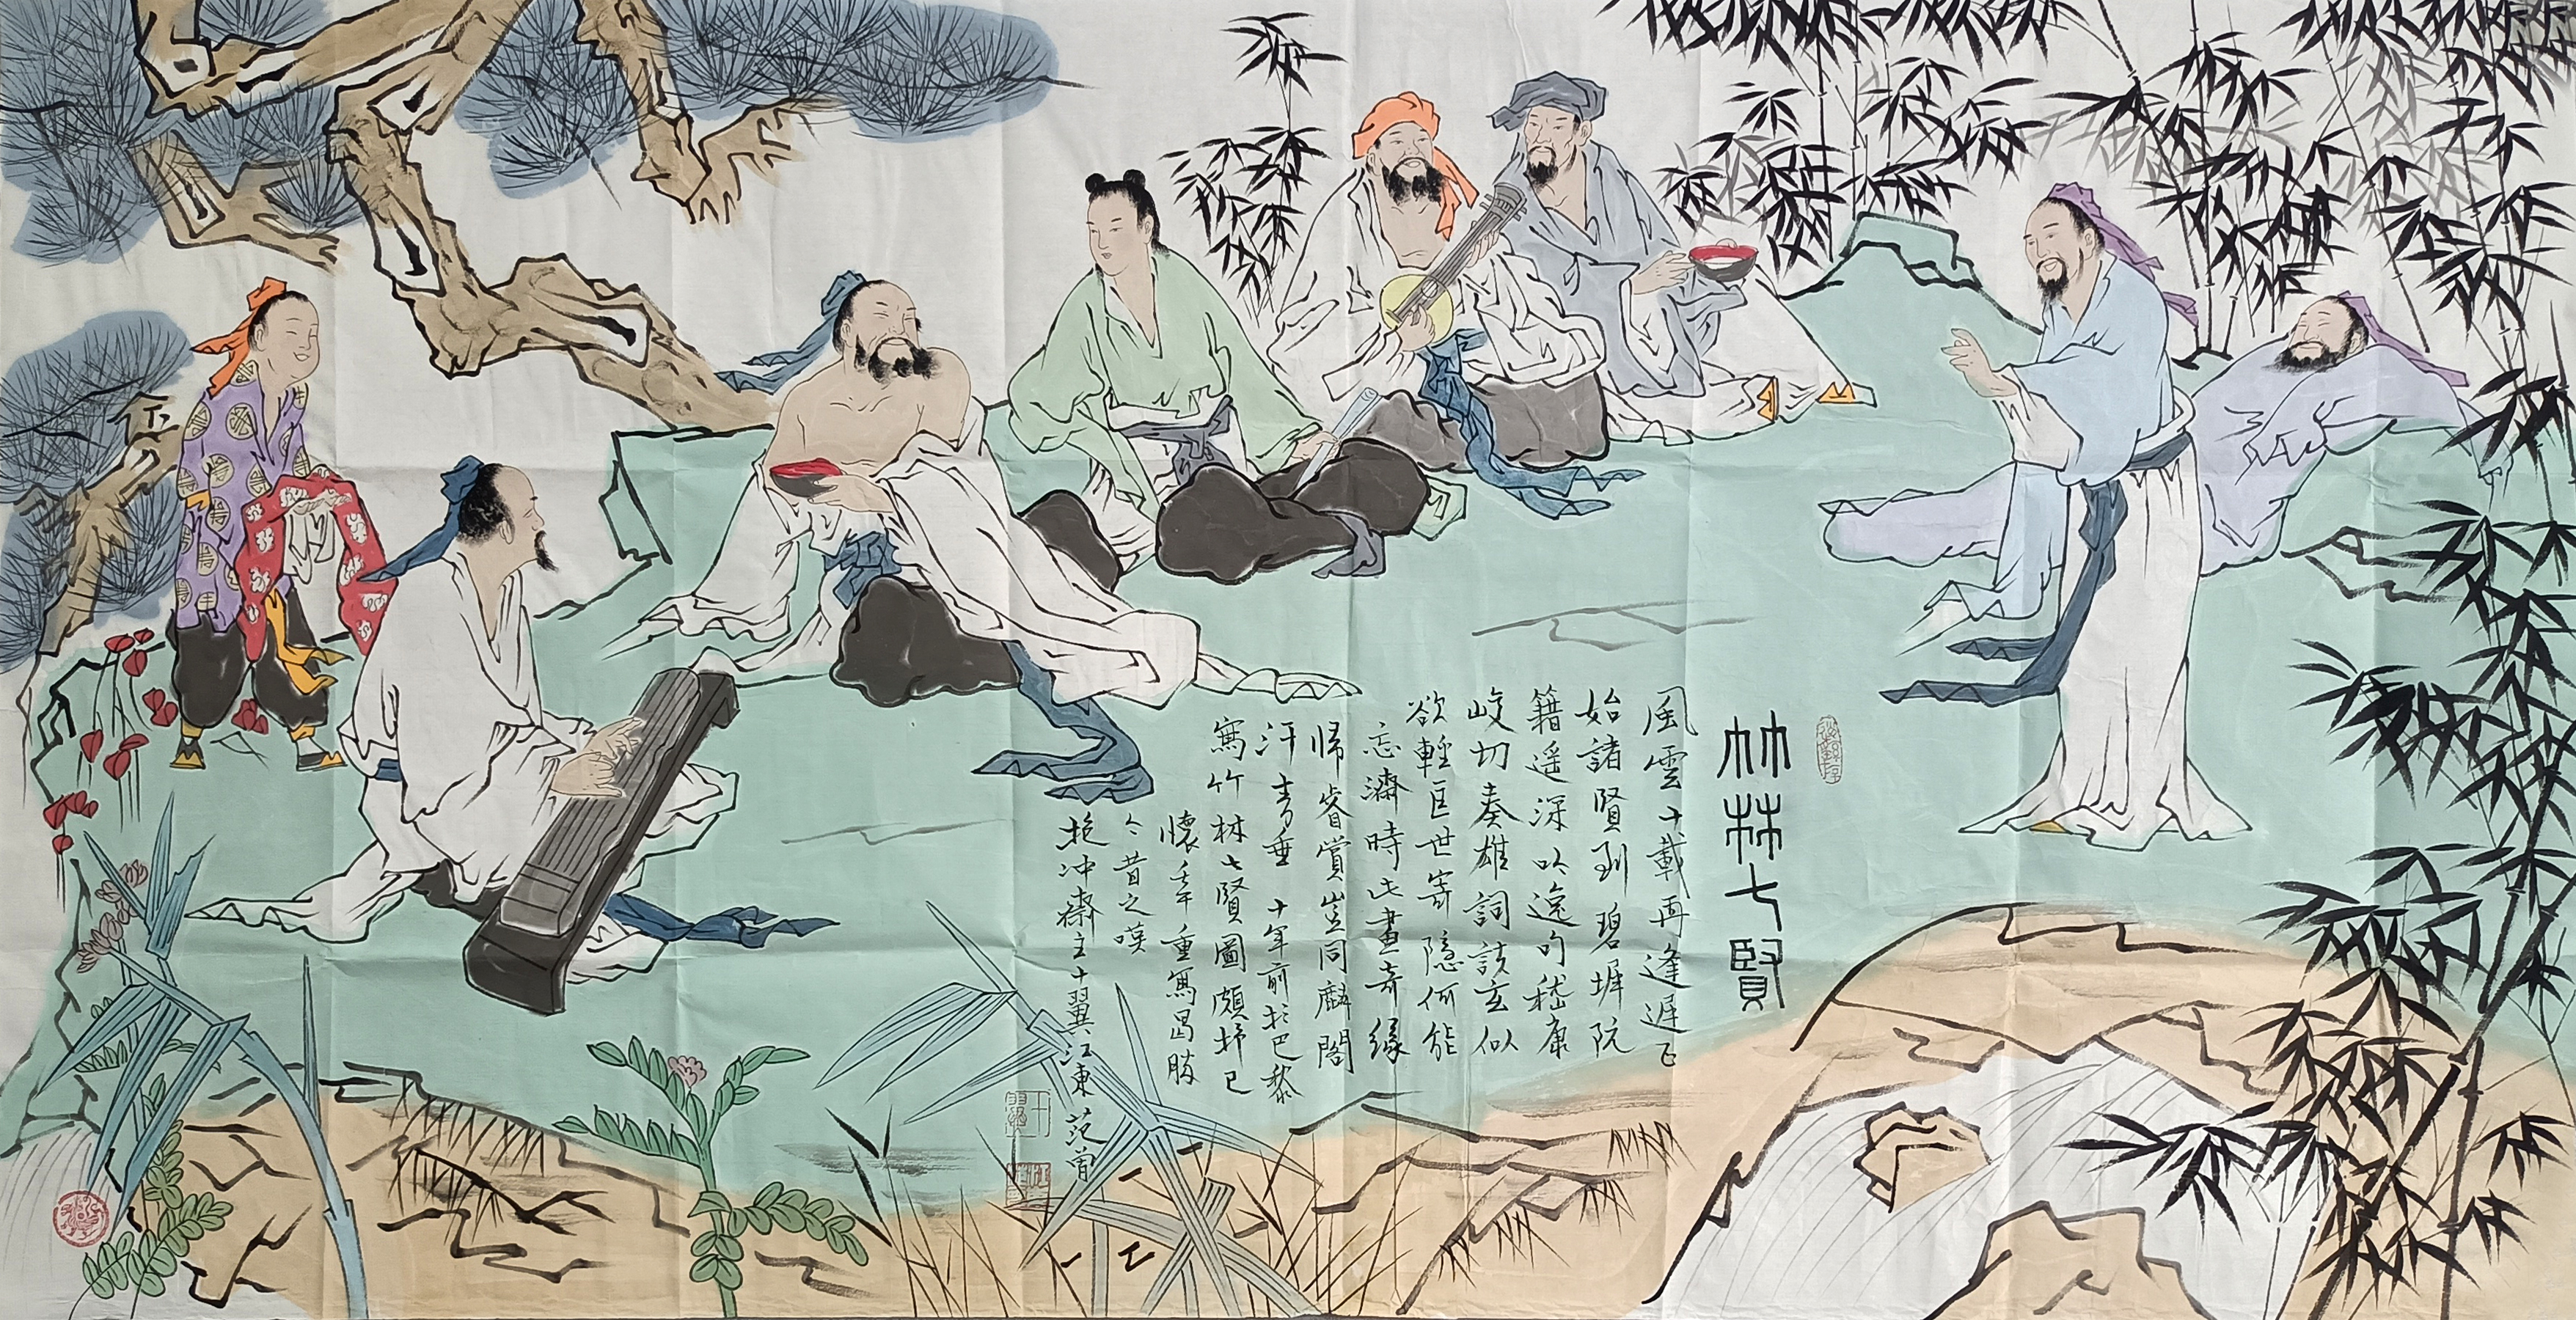 竹林七賢
風雲十載再逢遲正
始諸賢到碧墀阮
籍遥深吟逸句嵇康
峻切奏雄詞談玄似
欲輕匡世寄隱何能
忘濟時此畫奇緣
歸睿賞豈同麟閣
汗青垂 十年前於巴黎
寫竹林七賢圖頗抒己
懷重寫曷勝
今昔之嘆
抱冲齋主十翼江東范曾